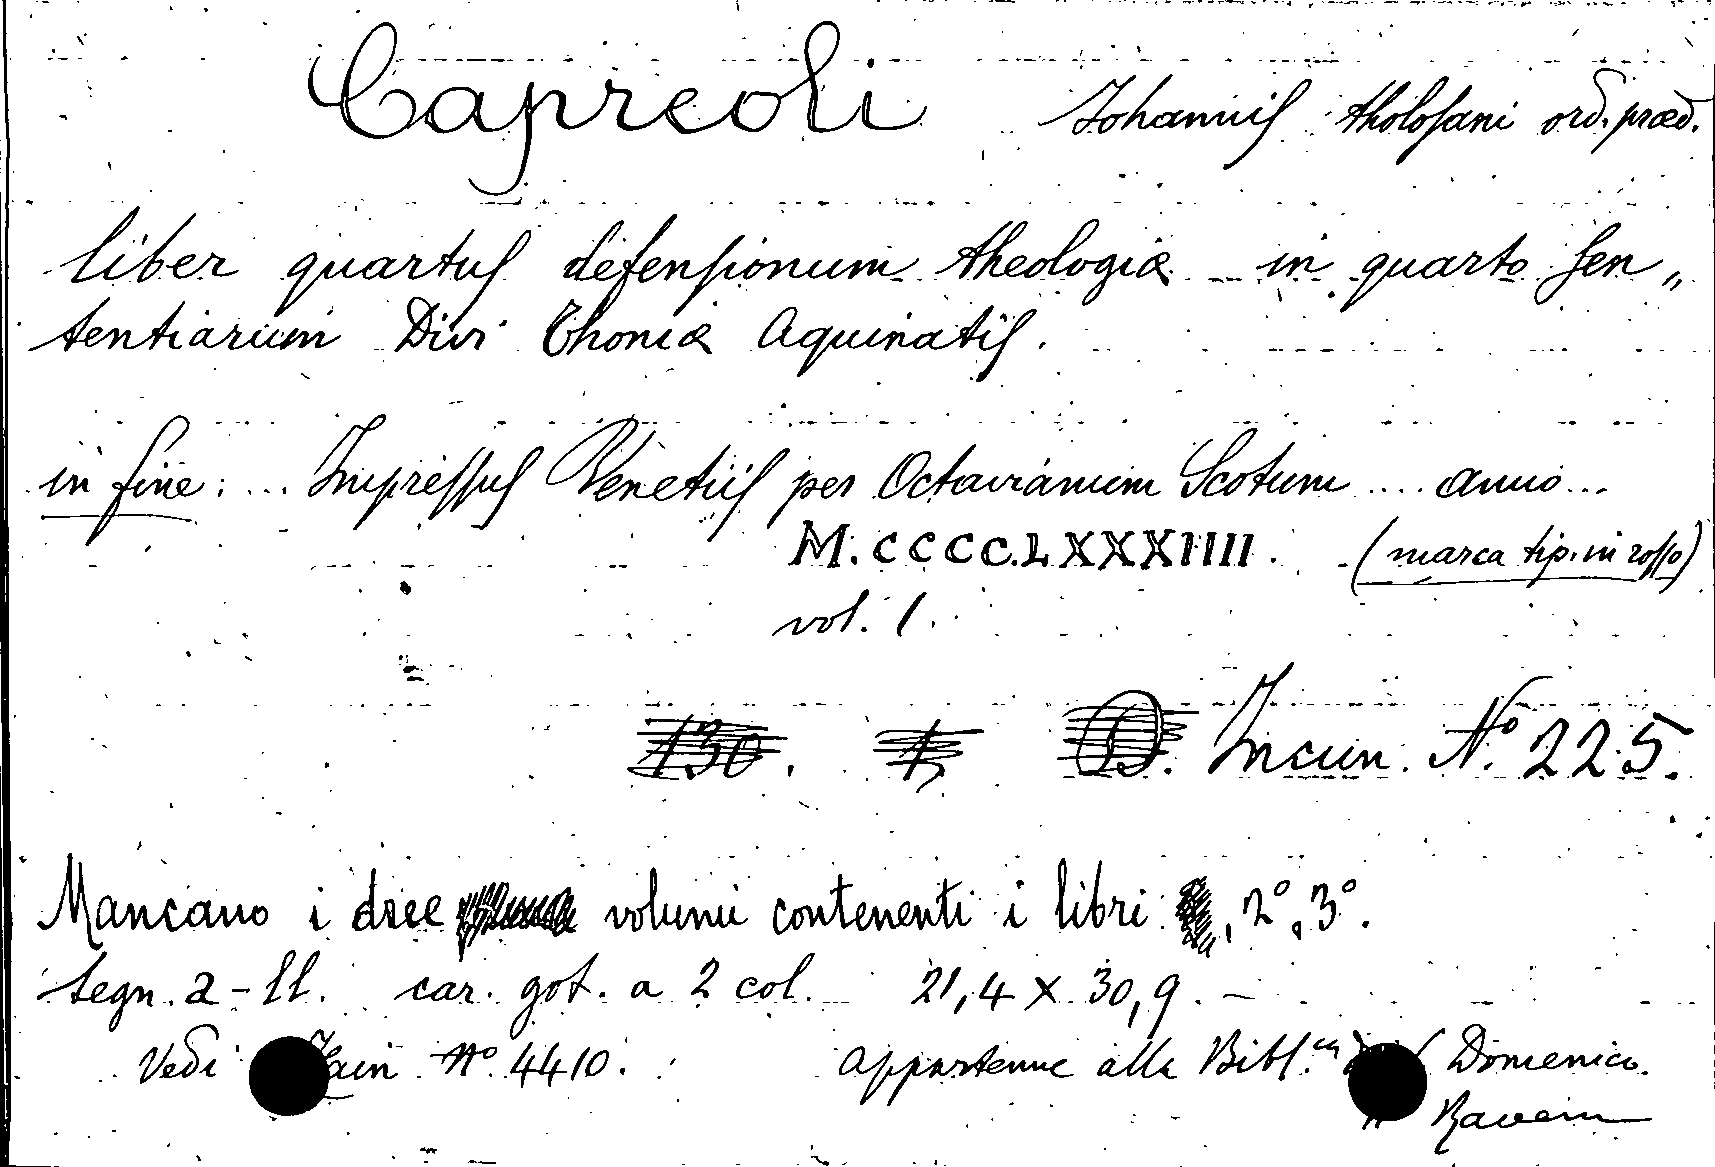 Capreoli Johannis tholosani ord. præd.
liber quartus defensionum theologiæ in quarto sen„
tentiarum Divi Thomæ Aquinatis.
in fine: ... Impressus Venetiis per Octavianum Scotum .... anno...
M.CCCC.LXXXIIII. (marca tip. in rosso)
vol. 1.
130. 1 D. Incun. Nº 225.
Mancano i due volumi contenenti i libri , 2º, 3º.
segn. a-ll. car. got. a 2 col. 21,4 X 30,9. —
Vedi Hain Nº 4410. Appartenne alla Bibl.ca Domenico.
Raven